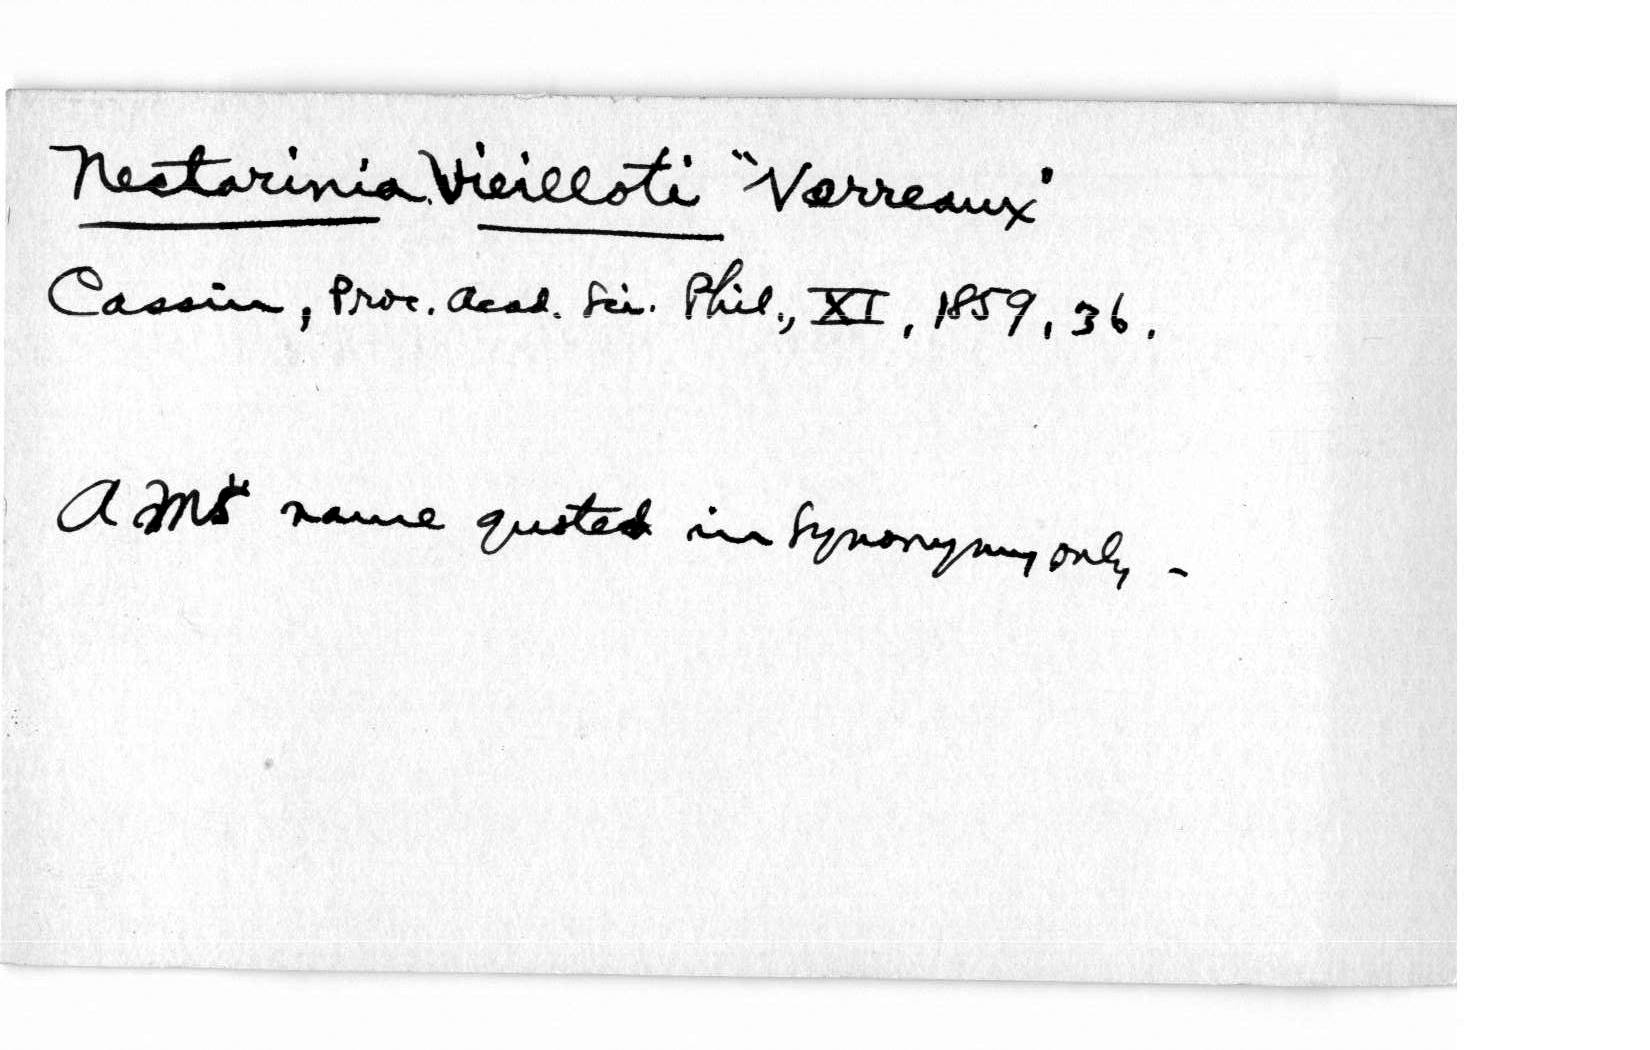 Nectarinia Vieilloti "Verreaux"
Cassin, Proc. Acad. Sci. Phil., XI, 1859, 36.
A MS name quoted in synonymy only -